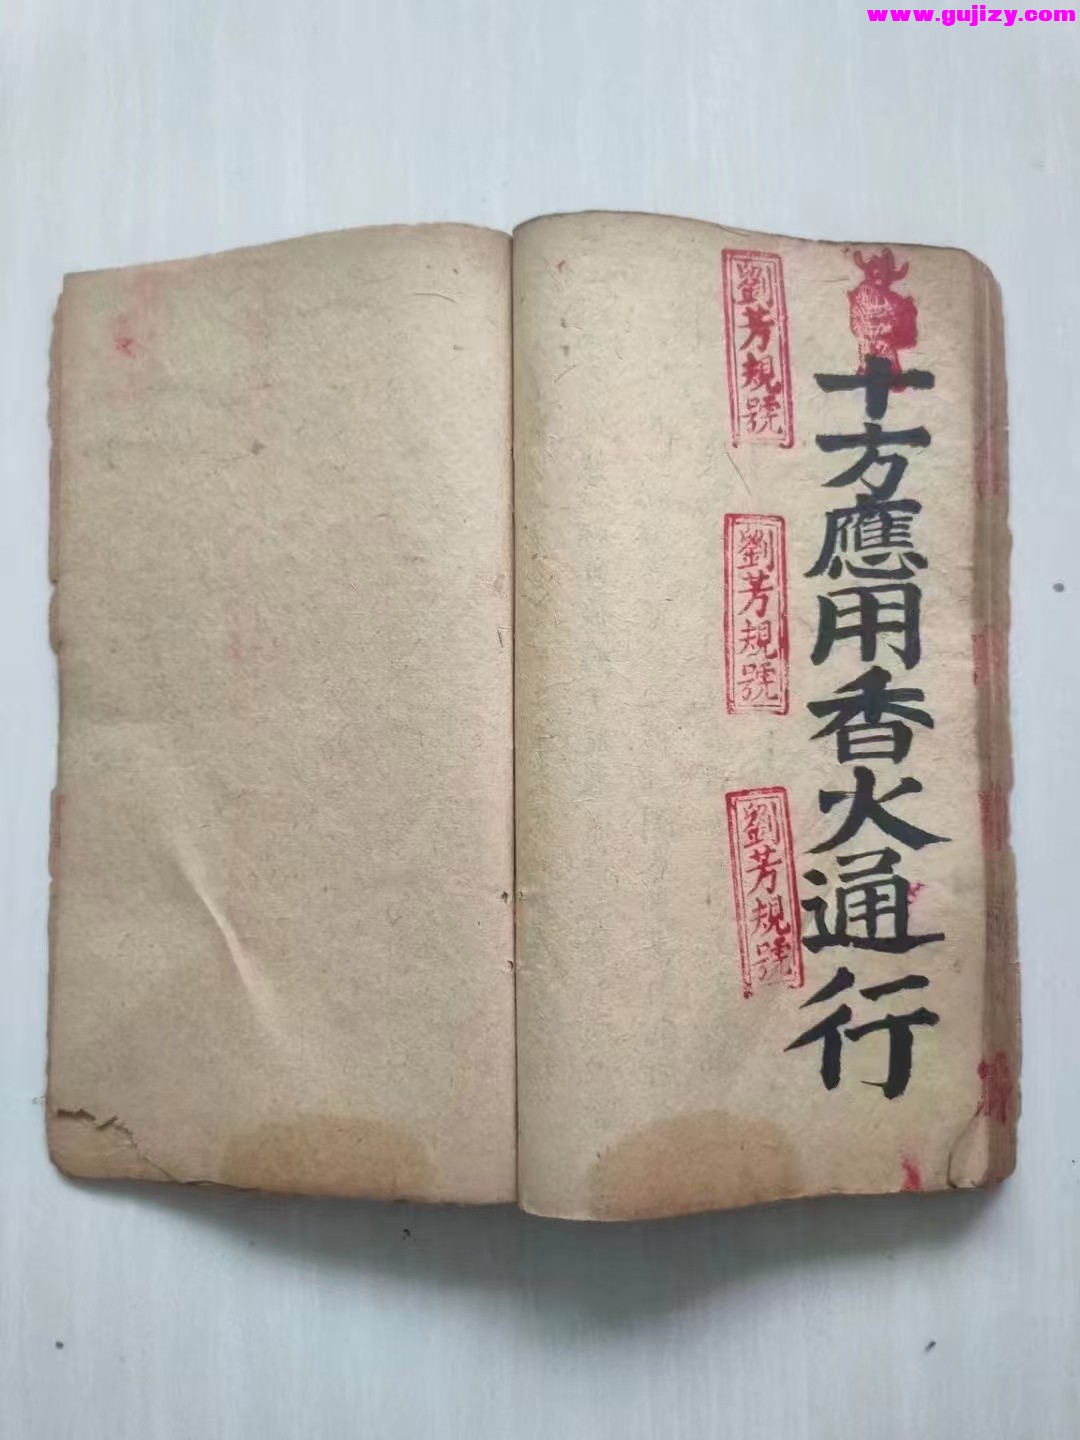 www.gujizy.com
十方應用香火通行
劉芳規號
劉芳規號
劉芳規號